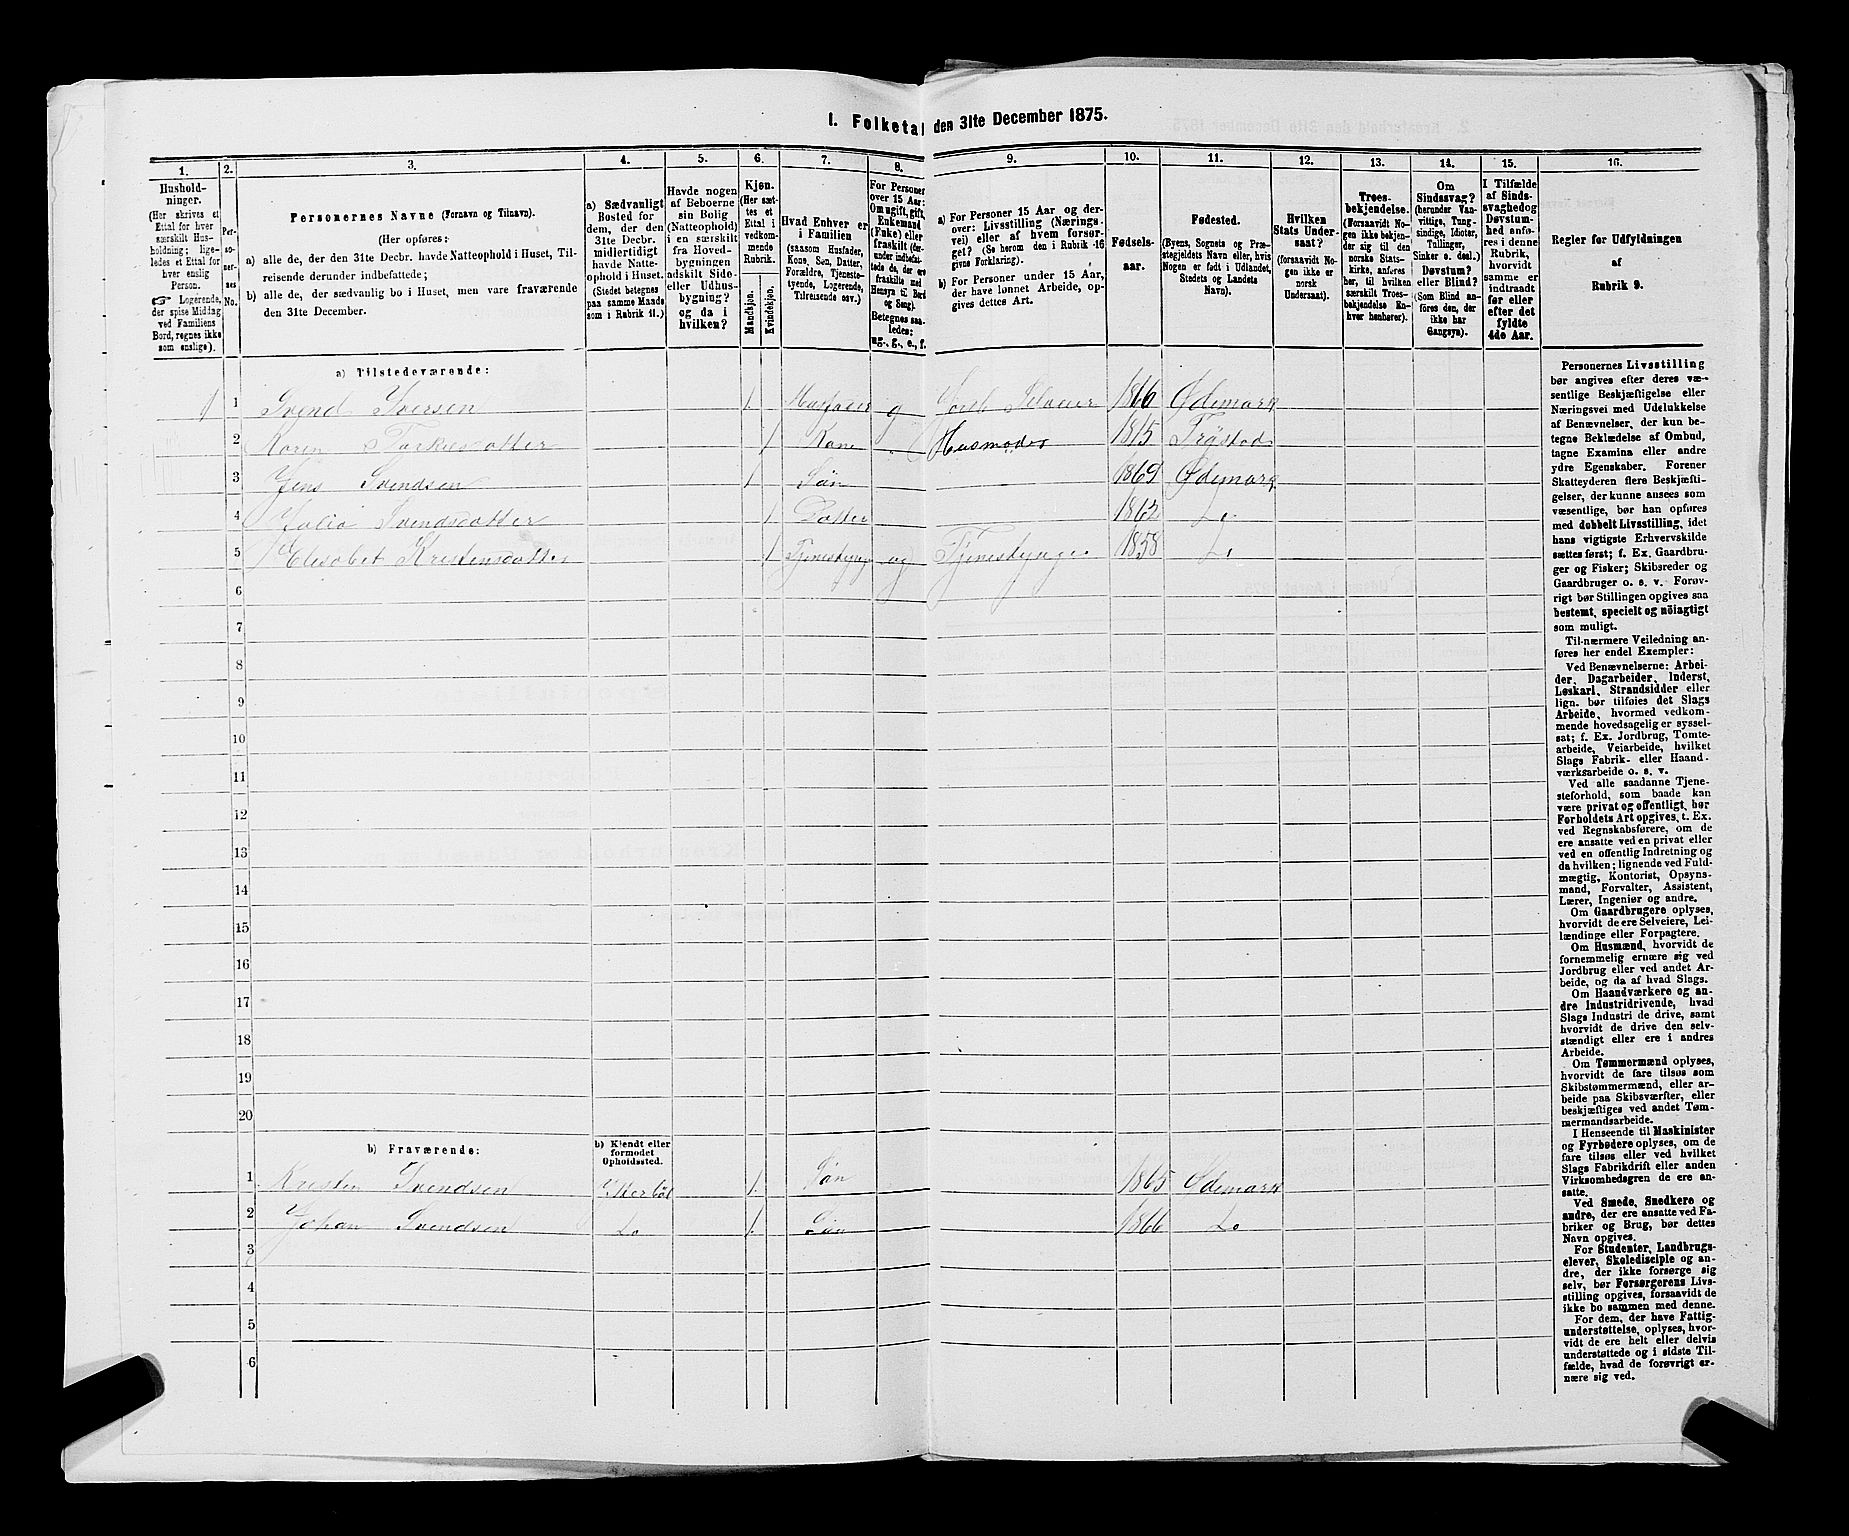 1. Folketal den 31te December 1875.
1. 2. 3. 4. 5. 6. 7. 8. 9. 10. 11. 12. 13. 14. 15. 16.
Hushold-
ninger.
(Her skrives et
Ettal for hver
særskilt Hus-
holdning; lige-
ledes et Ettal for
hver enslig
Person.
☞ Logerende,
der spise Middag
ved Familiens
Bord, regnes ikke
som enslige).
Per-
so-
ner-
nes
No.
Personernes Navne (Fornavn og Tilnavn).
(Her opføres:
a) alle de, der den 31te Decbr. havde Natteophold i Huset, Til-
reisende derunder indbefattede;
b) alle de, der sædvanlig bo i Huset, men vare fraværende
den 31te December.
a) Sædvanligt
Bosted for
dem, der den
31te Decbr.
midlertidigt
havde Natte-
ophold i Huset.
(Stedet betegnes
paa samme Maade
som i Rubrik 11.)
Havde nogen
af Beboerne
sin Bolig
(Natteophold)
i en særskilt
fra Hoved-
bygningen
adskilt Side-
eller Udhus-
bygning?
og da i
hvilken?
Kjøn.
(Her sæt-
tes et
Ettal i
vedkom-
mende
Rubrik.
Mandkjøn.
Kvindekjøn.
Hvad Enhver er
i Familien
(saasom Husfader,
Kone, Søn, Datter,
Forældre, Tjeneste-
tyende, Logerende,
Tilreisende osv.)
For Personer
over 15 Aar:
Om ugift, gift,
Enkemand
(Enke) eller
fraskilt (der-
under indbefat-
tede de, der ere
fraskilte med
Hensyn til Bord
og Seng).
Betegnes saa-
ledes:
ug., g., e., f.
a) For Personer 15 Aar og der-
over: Livsstilling (Nærings-
vei) eller af hvem forsør-
get? (Se herom den i Rubrik 16
givne Forklaring).
b) For Personer under 15 Aar,
der have lønnet Arbeide, op-
gives dettes Art.
Fødsels-
aar.
Fødested.
(Byens, Sognets og Præ-
stegjeldets Navn eller, hvis
Nogen er født i Udlandet,
Stedets og Landets
Navn).
Hvilken
Stats Under-
saat?
(forsaavidt No-
gen ikke er
norsk
Undersaat).
Troes-
bekjendelse.
(Forsaavidt No-
gen ikke bekjen-
der sig til den
norske Stats-
kirke, anføres
her, til hvilken
særskilt Troes-
bekjendelse En-
hver henhører).
Om
Sindssvag?
(herunder Van-
vittige, Tung-
sindige, Idioter,
Tullinger,
Sinker o. desl.)
Døvstum?
eller Blind?
(Som Blind an-
føres den, der
ikke har
Gangsyn).
I Tilfælde
af Sinds-
svaghed og
Døvstum-
hed anfø-
res i denne
Rubrik,
hvorvidt
samme er
indtraadt
før eller
efter det
fyldte
4de Aar.
Regler for Udfyldningen
af
Rubrik 9.
a) Tilstedeværende:
1 1 Svend Iversen 1 Husfader g Jordb Selveier 1866 Ødemark
2 Karen Tarkesdatter 1 Kone Husmoder 1815 Trøstad
3 Jens Svendsen 1 Søn 1869 Ødemark
4 Julia Svendsdatter 1 Datter 1862 Do
5 Elisabet Kristensdatter 1 Tjenestpige ug Tjenestpige 1858 Do
6
7
8
9
10
11
12
13
14
15
16
17
18
19
20
b) Fraværende:
b) Kjendt eller
formodet
Opholdssted.
1 Kristen Svendsen 1 Søn 1865 Ødemark
2 Johan Svendsen Do 1 Søn 1866 Do
3
4
5
6
Personernes Livsstilling
bør angives efter deres væ-
sentlige Beskjæftigelse eller
Næringsvei med Udelukkelse
af Benævnelser, der kun be-
tegne Beklædelse af Ombud,
tagne Examina eller andre
ydre Egenskaber. Forener
Skatteyderen flere Beskjæfti-
gelser, der kunne ansees som
væsentlige, bør han opføres
med dobbelt Livsstilling, idet
hans vigtigste Erhvervskilde
sættes først; f. Ex. Gaardbru-
ger og Fisker; Skibsreder og
Gaardbruger o. s. v. Forøv-
rigt bør Stillingen opgives saa
bestemt, specielt og nøiagtigt
som muligt.
Til nærmere Veiledning an-
føres her endel Exempler:
Ved Benævnelserne: Arbei-
der, Dagarbeider, Inderst,
Løskarl, Strandsidder eller
lign. bør tilføies det Slags
Arbeide, hvormed vedkom-
mende hovedsagelig er syssel-
sat; f. Ex. Jordbrug, Tomte-
arbeide, Veiarbeide, hvilket
Slags Fabrik- eller Haand-
værksarbeide o. s. v.
Ved alle saadanne Tjene-
steforhold, som baade kan
være privat og offentligt, bør
Forholdets Art opgives, t. Ex.
ved Regnskabsførere, om de
ere ansatte ved en privat eller
ved en offentlig Indretning og
da hvilken; lignende ved Fuld-
mægtig, Kontorist, Opsyns-
mand, Forvalter, Assistent,
Lærer, Ingeniør og andre.
Om Gaardbrugere oplyses,
hvorvidt de ere Selveiere, Lei-
lændinge eller Forpagtere.
Om Husmænd, hvorvidt de
fornemmelig ernære sig ved
Jordbrug eller ved andet Ar-
beide, og da af hvad Slags.
Om Haandværkere og an-
dre Industridrivende, hvad
Slags Industri de drive, samt
hvorvidt de drive den selv-
stændigt eller ere i andres
Arbeide.
Om Tømmermænd oplyses,
hvorvidt de fare tilsøs som
Skibstømmermænd, eller ar-
beide paa Skibsværfter, eller
beskjæftiges ved andet Tøm-
mermandsarbeide.
I Henseende til Maskinister
og Fyrbødere oplyses, om de
fare tilsøs eller ved hvilket
Slags Fabrikdrift eller anden
Virksomhedsgren de ere an-
satte.
Ved Smede, Snedkere og
andre, der ere ansatte ved Fa-
briker og Brug, bør dettes
Navn opgives.
For Studenter, Landbrugs-
elever, Skoledisciple og an-
dre, der ikke forsørge sig
selv, bør Forsørgerens Livs-
stilling opgives, forsaavidt de
ikke bo sammen med denne.
For dem, der have Fattig-
understøttelse, oplyses, hvor-
vidt de ere helt eller delvis
understøttede og i sidste Til-
fælde, hvad de forøvrigt er-
nære sig ved.